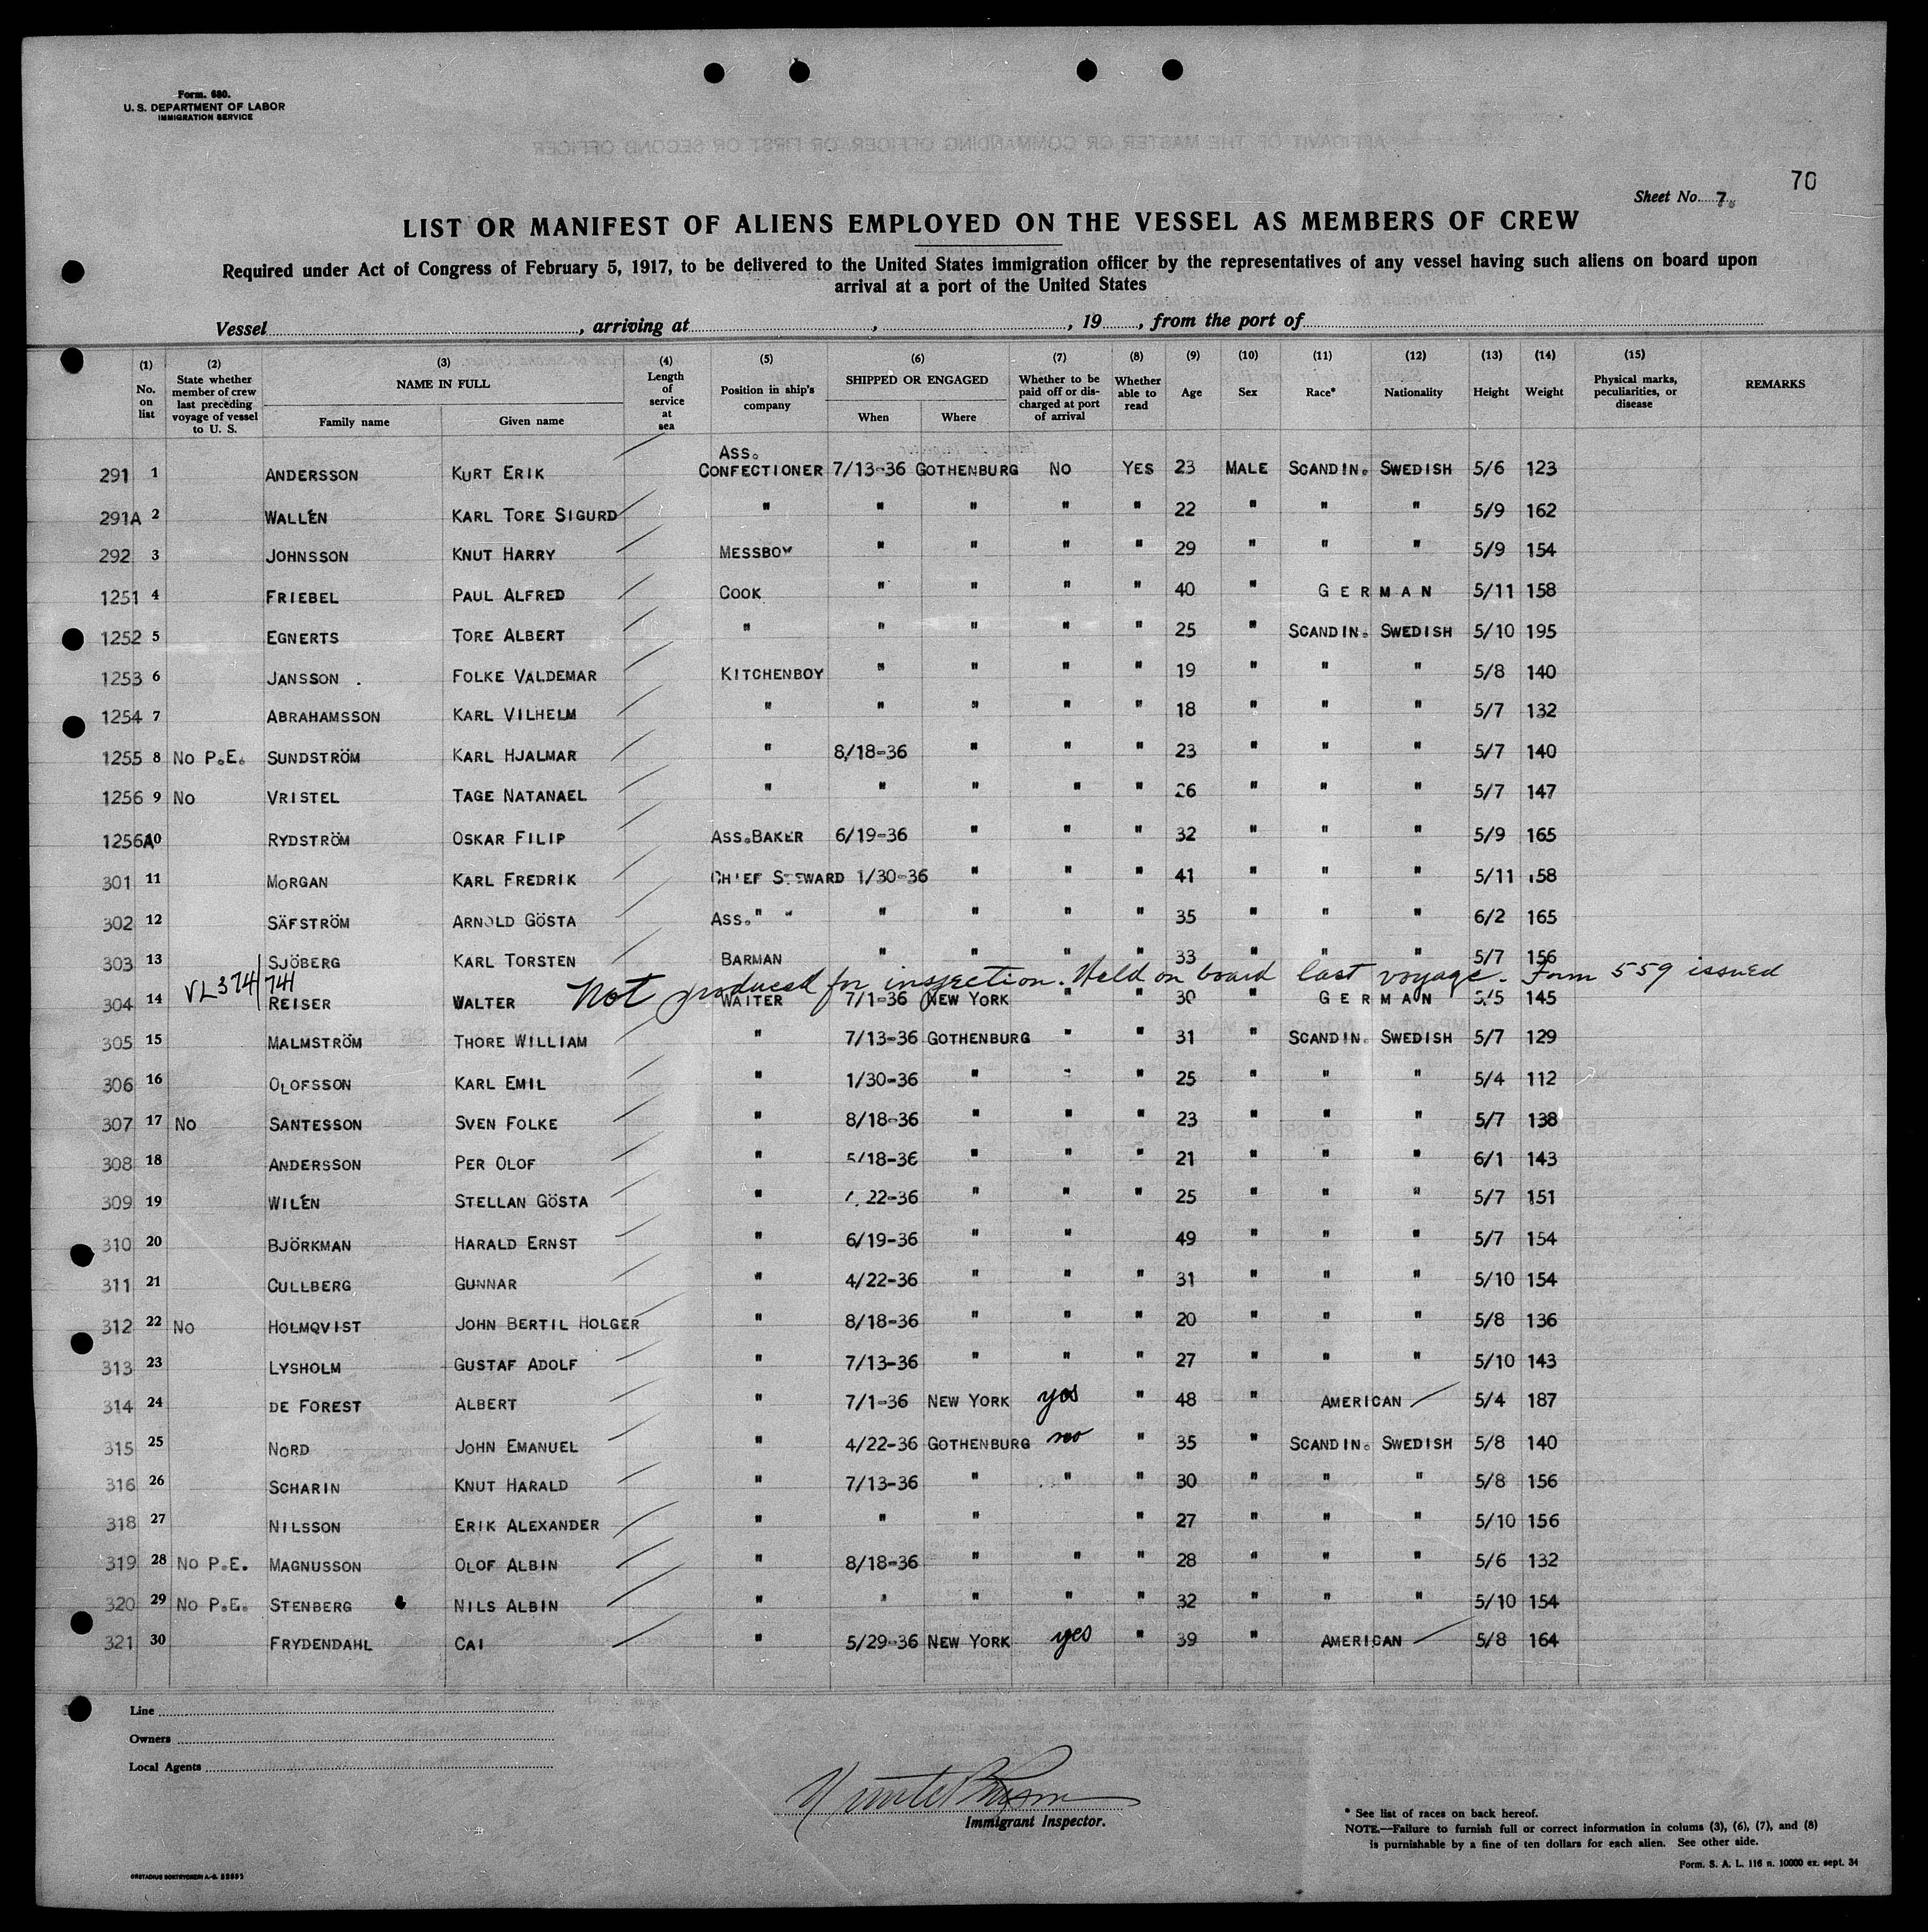 Form. 680.
U. S. DEPARTMENT OF LABOR
IMMIGRATION SERVICE
70
Sheet No. 7.
LIST OR MANIFEST OF ALIENS EMPLOYED ON THE VESSEL AS MEMBERS OF CREW
Required under Act of Congress of February 5, 1917, to be delivered to the United States immigration officer by the representatives of any vessel having such aliens on board upon
arrival at a port of the United States
Vessel , arriving at , , 19 , from the port of
(1) No. on list (2) State whether member of crew last preceding voyage of vessel to U. S. (3) NAME IN FULL Family name Given name (4) Length of service at sea (5) Position in ship's company (6) SHIPPED OR ENGAGED When Where (7) Whether to be paid off or discharged at port of arrival (8) Whether able to read (9) Age (10) Sex (11) Race* (12) Nationality (13) Height (14) Weight (15) Physical marks, peculiarities, or disease REMARKS
291 1 ANDERSSON KURT ERIK ASS. CONFECTIONER 7/13-36 GOTHENBURG NO YES 23 MALE SCANDIN. SWEDISH 5/6 123
291A 2 WALLÉN KARL TORE SIGURD " " " " " 22 " " " 5/9 162
292 3 JOHNSSON KNUT HARRY MESSBOY " " " " 29 " " " 5/9 154
1251 4 FRIEBEL PAUL ALFRED COOK " " " " 40 " GERMAN 5/11 158
1252 5 EGNERTS TORE ALBERT " " " " " 25 " SCANDIN. SWEDISH 5/10 195
1253 6 JANSSON . FOLKE VALDEMAR KITCHENBOY " " " " 19 " " " 5/8 140
1254 7 ABRAHAMSSON KARL VILHELM " " " " " 18 " " " 5/7 132
1255 8 NO P.E. SUNDSTRÖM KARL HJALMAR " 8/18-36 " " " 23 " " " 5/7 140
1256 9 NO VRISTEL TAGE NATANAEL " " " " " 26 " " " 5/7 147
1256A 10 RYDSTRÖM OSKAR FILIP ASS.BAKER 6/19-36 " " " 32 " " " 5/9 165
301 11 MORGAN KARL FREDRIK CHIEF STEWARD 1/30-36 " " " 41 " " " 5/11 158
302 12 SÄFSTRÖM ARNOLD GÖSTA ASS." " " " " " 35 " " " 6/2 165
303 13 SJÖBERG KARL TORSTEN BARMAN " " " " 33 " " " 5/7 156
VL 374/741 Not produced for inspection. Held on board last voyage. Form 559 issued
304 14 REISER WALTER WAITER 7/1-36 NEW YORK " " 30 " GERMAN 5/5 145
305 15 MALMSTRÖM THORE WILLIAM " 7/13-36 GOTHENBURG " " 31 " SCANDIN. SWEDISH 5/7 129
306 16 OLOFSSON KARL EMIL " 1/30-36 " " " 25 " " " 5/4 112
307 17 NO SANTESSON SVEN FOLKE " 8/18-36 " " " 23 " " " 5/7 138
308 18 ANDERSSON PER OLOF " 5/18-36 " " " 21 " " " 6/1 143
309 19 WILÉN STELLAN GÖSTA " 22-36 " " " 25 " " " 5/7 151
310 20 BJÖRKMAN HARALD ERNST " 6/19-36 " " 49 " " " 5/7 154
311 21 CULLBERG GUNNAR " 4/22-36 " " " 31 " " " 5/10 154
312 22 NO HOLMQVIST JOHN BERTIL HOLGER " 8/18-36 " " " 20 " " " 5/8 136
313 23 LYSHOLM GUSTAF ADOLF " 7/13-36 " " " 27 " " " 5/10 143
314 24 DE FOREST ALBERT " 7/1-36 NEW YORK yes " 48 " AMERICAN 5/4 187
315 25 NORD JOHN EMANUEL " 4/22-36 GOTHENBURG no " 35 " SCANDIN. SWEDISH 5/8 140
316 26 SCHARIN KNUT HARALD " 7/13-36 " " " 30 " " " 5/8 156
318 27 NILSSON ERIK ALEXANDER " " " " 27 " " " 5/10 156
319 28 NO P.E. MAGNUSSON OLOF ALBIN " 8/18-36 " " " 28 " " " 5/6 132
320 29 NO P.E. STENBERG NILS ALBIN " " " " " 32 " " " 5/10 154
321 30 FRYDENDAHL CAI " 5/29-36 NEW YORK yes " 39 " AMERICAN 5/8 164
Line
Owners
Local Agents
Immigrant Inspector.
* See list of races on back hereof.
NOTE.—Failure to furnish full or correct information in colums (3), (6), (7), and (8)
is purnishable by a fine of ten dollars for each alien. See other side.
Form. S. A. L. 116 n. 10000 ex. sept. 34